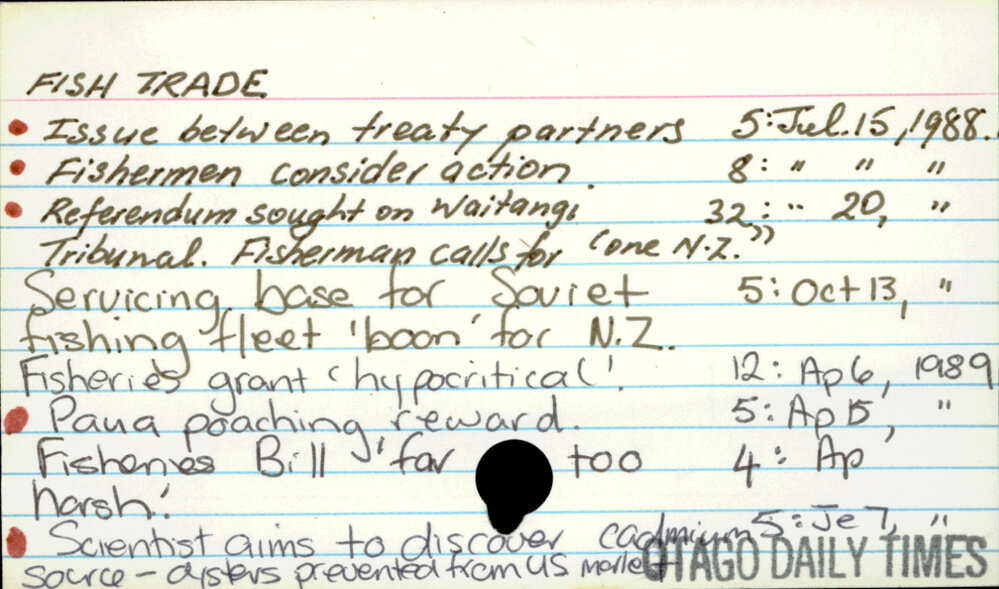 FISH TRADE
Issue between treaty partners 5: Jul. 15, 1988.
Fishermen consider action. 8: " " "
Referendum sought on Waitangi 32: " 20, "
Tribunal. Fisherman calls for "one N.Z."
Servicing base for Soviet 5: Oct 13, "
fishing fleet 'boon' for N.Z.
Fisheries grant 'hypocritical'. 12: Ap 6, 1989
Paua poaching reward. 5: Ap 15, "
Fisheries Bill 'far too 4: Ap
harsh'.
Scientist aims to discover cadmium 5: Je 7, "
source - oysters prevented from US market
OTAGO DAILY TIMES